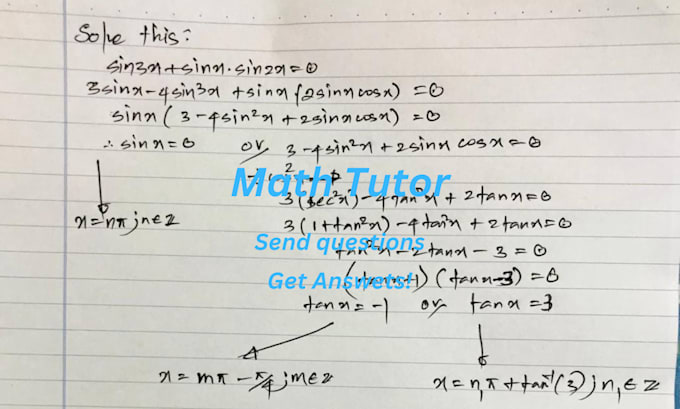 Solve this:
sin3x + sinx . sin2x = 0
3sinx - 4sin³x + sinx (2sinx cosx) = 0
sinx ( 3 - 4sin²x + 2sinx cosx) = 0
∴ sinx = 0 or 3 - 4sin²x + 2sinx cosx = 0
Math Tutor
3(sec²x) - 4tan²x + 2tanx = 0
x = nπ ; n ∈ Z 3(1+tan²x) - 4tan²x + 2tanx = 0
Send questions
tan²x - 2tanx - 3 = 0
Get Answets!
(tanx+1) (tanx-3) = 0
tanx = -1 or tanx = 3
x = mπ - π/4 ; m ∈ Z x = n₁π + tan⁻¹(3) ; n₁ ∈ Z